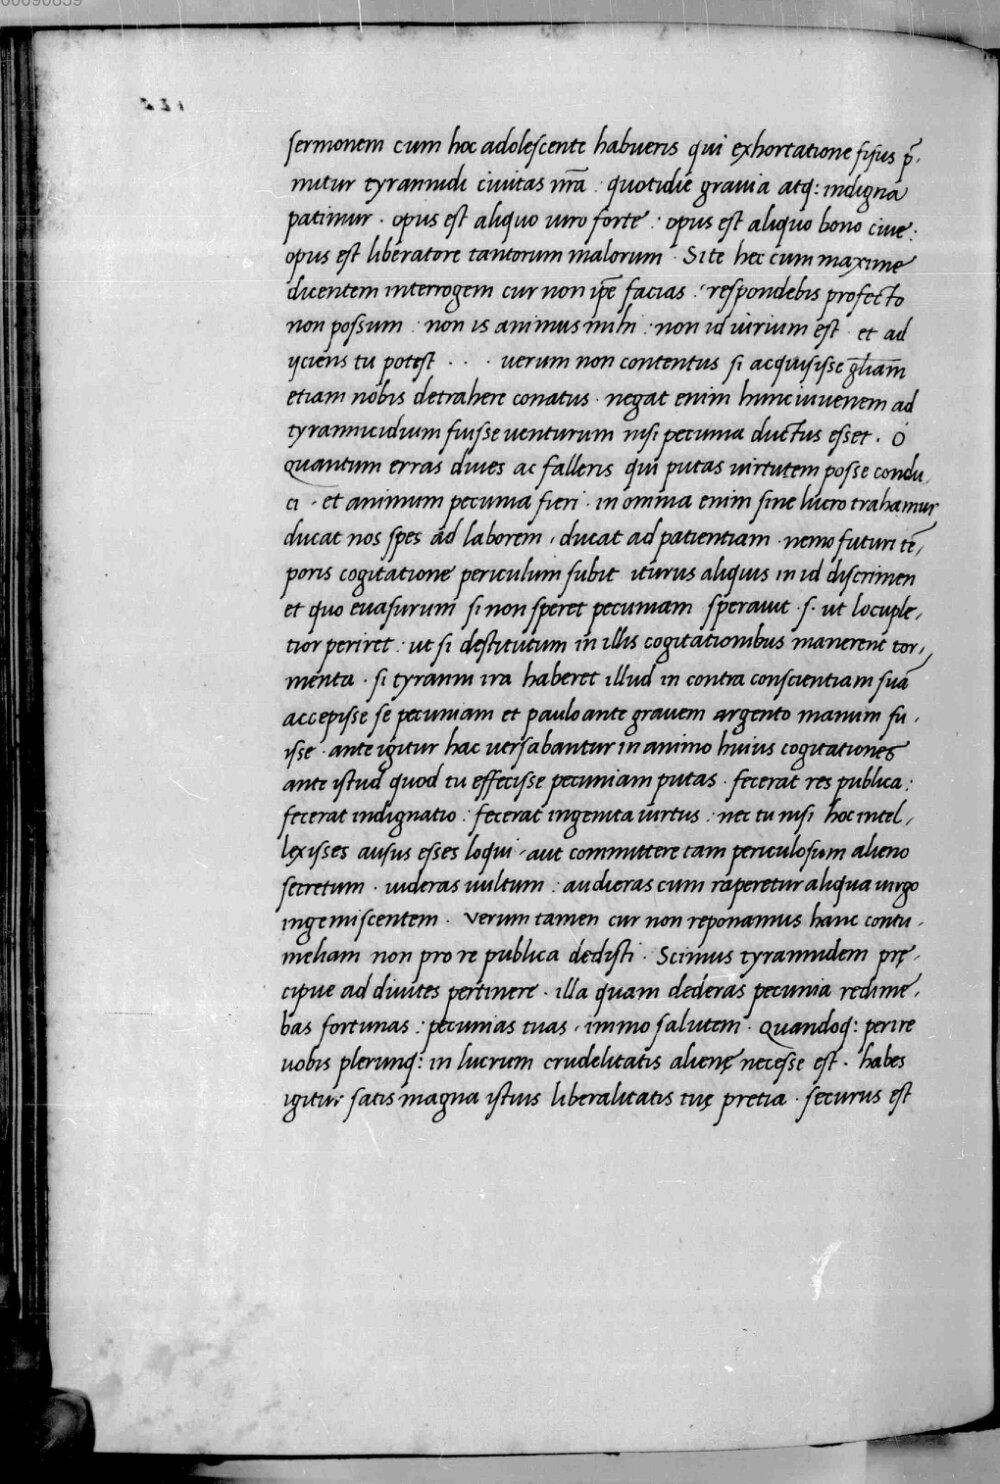 00090859
sermonem cum hoc adolescente habueris qui exhortatione fijus p̄,
mitur tyrannidi ciuitas nr̄a . quotidie grauia atq: indigna
patimur . opus est aliquo uiro forte : opus est aliquo bono ciue :
opus est liberatore tantorum malorum . Si te hec cum maxime
dicentem interrogem cur non ip̄e facias : respondebis profecto
non possum : non is animus mihi : non id uirium est . et ad
ijciens tu potest . . . uerum non contentus si acquisisse gl̄iam
etiam nobis detrahere conatus . negat enim hunc iuuenem ad
tyrannicidium fuisse uenturum nisi pecunia ductus esset . O
quantum erras diues ac falleris qui putas uirtutem posse condu,
ci . et animum pecunia fieri . in omnia enim sine lucro trahamur
ducat nos spes ad laborem , ducat ad patientiam . nemo futuri tē,
poris cogitatione periculum subit iturus aliquis in id discrimen
et quo euasurum si non speret pecuniam sperauit . s. ut locuple,
tior periret : ut si destitutum in illis cogitationibus manerent tor,
menta . si tyranni ira haberet illud in contra conscientiam suā
accepisse se pecuniam et paulo ante grauem argento manum fu,
isse . ante igitur hac uersabantur in animo huius cogitationes
ante istud quod tu effecisse pecuniam putas . fecerat res publica :
fecerat indignatio : fecerat ingenita uirtus : nec tu nisi hoc intel,
lexisses ausus esses loqui , aut committere tam periculosum alieno
secretum . uideras uultum : audieras cum raperetur aliqua uirgo
ingemiscentem . Verum tamen cur non reponamus hanc contu,
meliam non pro re publica dedisti . Scimus tyrannidem prę,
cipue ad diuites pertinere . illa quam dederas pecunia redime,
bas fortunas : pecunias tuas , immo salutem . Quandoq: perire
uobis plerunq: in lucrum crudelitatis alienę necesse est . habes
igitur satis magna istius liberalitatis tuę pretia . securus est